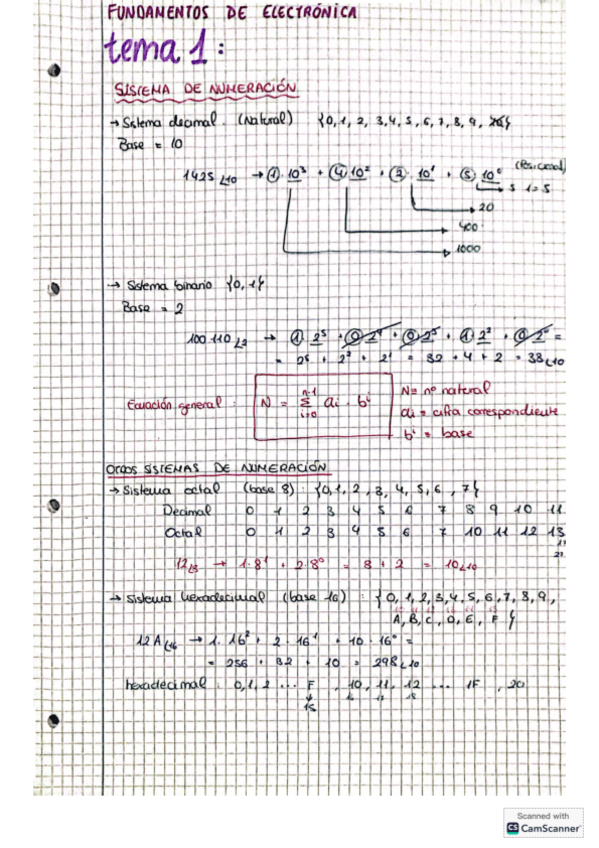 FUNDAMENTOS DE ELECTRÓNICA
tema 1:
SISTEMA DE NUMERACIÓN
→ Sistema decimal. (Natural) {0, 1, 2, 3, 4, 5, 6, 7, 8, 9, }
Base = 10
1425 10 → 1 · 10³ + 4 · 10² + 2 · 10¹ + 5 · 10⁰ (Posicional)
5 · 1 = 5
20
400
1000
→ Sistema binario {0, 1}
Base = 2
100 110 2 → 1 · 2⁵ + 0 · 2⁴ + 0 · 2³ + 1 · 2² + 0 · 2⁰ =
= 2⁵ + 2² + 2¹ = 32 + 4 + 2 = 38 10
Ecuación general: N = n-1 Σ i=0 ai · bⁱ
N = nº natural
ai = cifra correspondiente
bⁱ = base
OTROS SISTEMAS DE NUMERACIÓN
→ Sistema octal (base 8): {0, 1, 2, 3, 4, 5, 6, 7}
Decimal 0 1 2 3 4 5 6 7 8 9 10 11
Octal 0 1 2 3 4 5 6 7 10 11 12 13
12 8 → 1 · 8¹ + 2 · 8⁰ = 8 + 2 = 10 10
→ Sistema hexadecimal (base 16): {0, 1, 2, 3, 4, 5, 6, 7, 8, 9,
A, B, C, D, E, F}
12A 16 → 1 · 16² + 2 · 16¹ + 10 · 16⁰ =
= 256 + 32 + 10 = 298 10
hexadecimal: 0, 1, 2 ... F, 10, 11, 12 ... 1F, 20
15
Scanned with
CS CamScanner